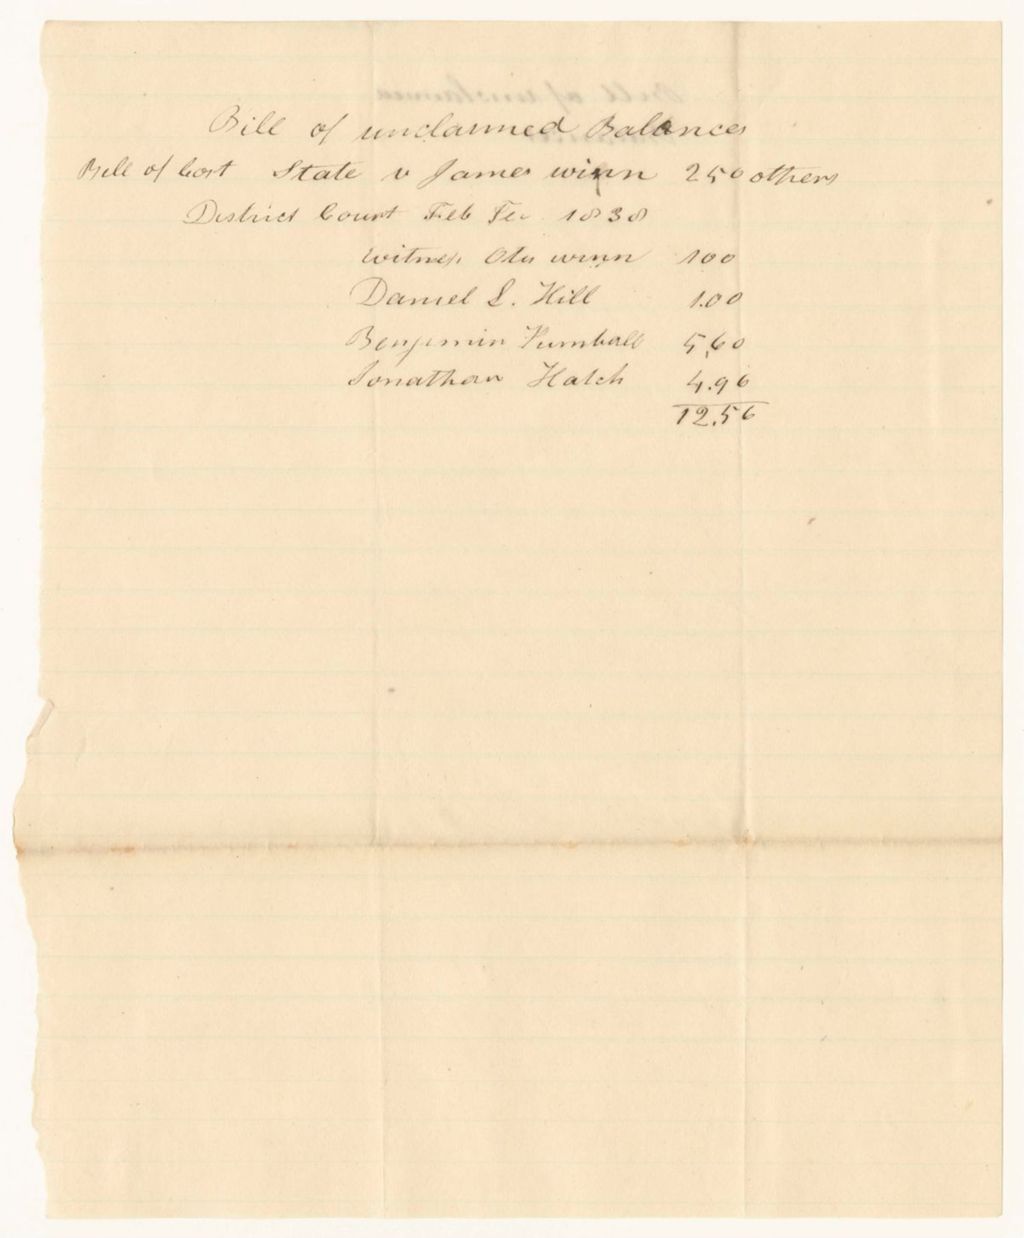 Bill of unclaimed Balances
Bill of Cost State v James winn 250 others
District Court Feb Te 1838
witness Otis winn 100
Daniel S. Hill 1.00
Benjamin Kimball 5,60
Jonathan Hatch 4.96
12.56